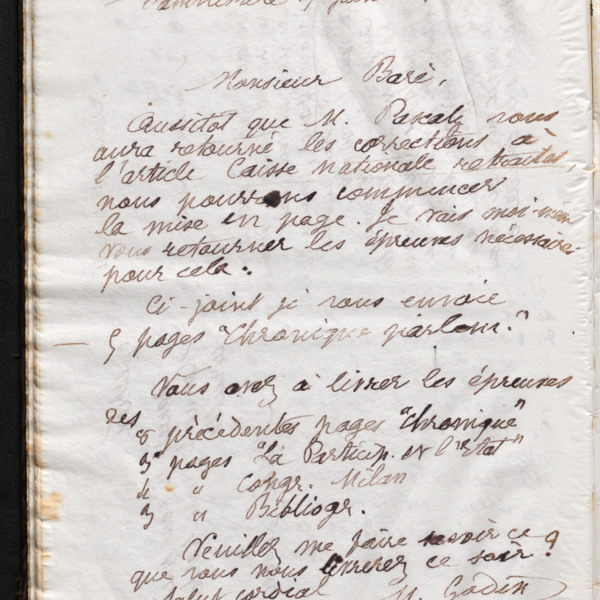 Monsieur Baré,
Aussitôt que M. Pascaly vous
aura retourné les corrections à
l'article Caisse nationale retraites,
nous pourrons commencer
la mise en page. Je vais moi-même
vous retourner les épreuves nécessaires
pour cela.
Ci-joint je vous envoie
5 pages "Chronique parlem."
Vous avez à livrer les épreuves
des 8 précédentes pages "Chronique"
3 pages "La Particip. et l'Etat"
4 " Congr. Milan
3 " Bibliogr.
Veuillez me faire savoir ce
que vous nous livrerez ce soir?
Salut cordial M. Godin